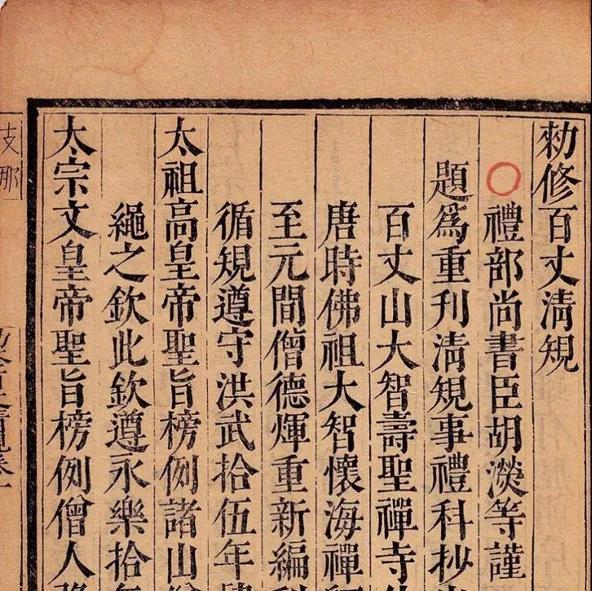 勑修百丈淸規
禮部尚書臣胡濙等謹
題爲重刊淸規事禮科抄
百丈山大智壽聖禪寺
唐時佛祖大智懷海禪
至元間僧德煇重新編
循規遵守洪武拾伍年
太祖高皇帝聖旨榜例諸山
繩之欽此欽遵永樂拾
太宗文皇帝聖旨榜例僧人
支那